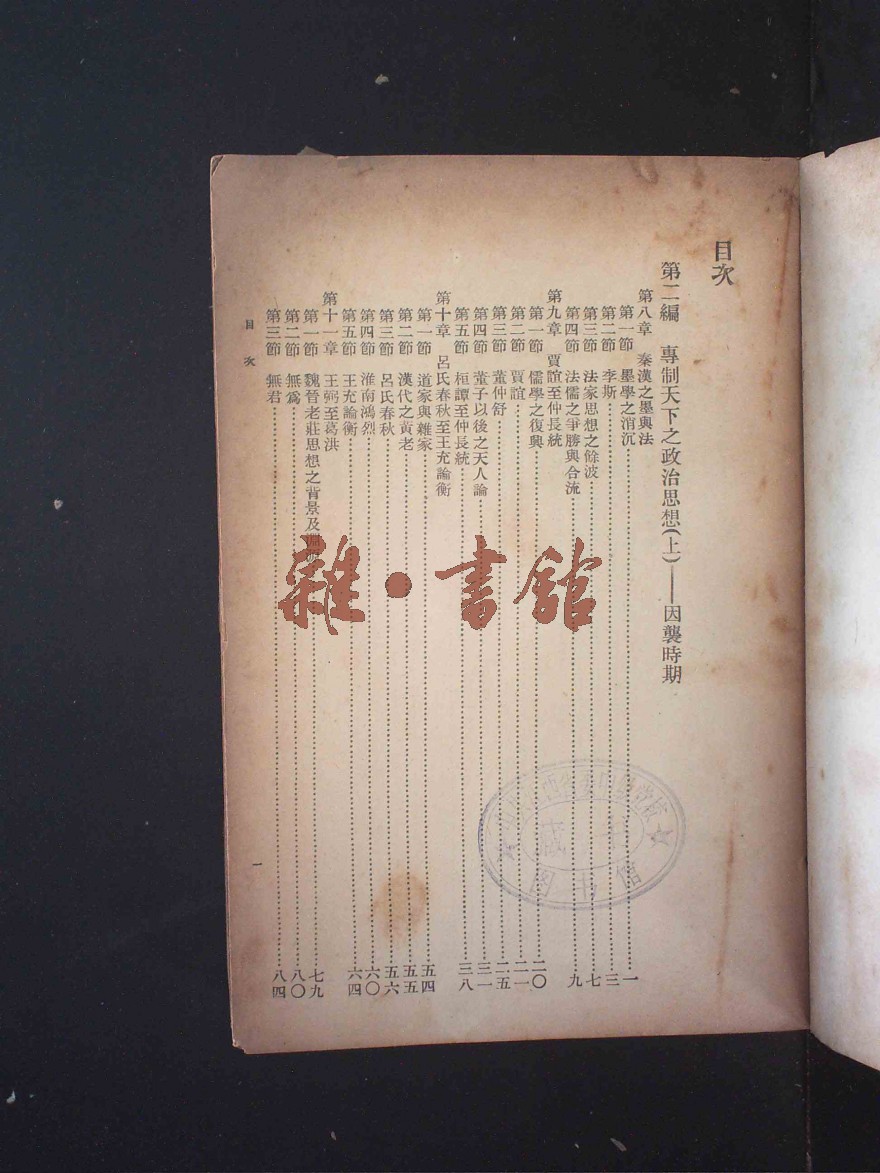 目次
第二編　專制天下之政治思想(上)——因襲時期
第八章　秦漢之墨與法
第一節　墨學之消沉……一
第二節　李斯……三
第三節　法家思想之餘波……七
第四節　法儒之爭勝與合流……九
第九章　賈誼至仲長統
第一節　儒學之復興……二〇
第二節　賈誼……二一
第三節　董仲舒……二五
第四節　董子以後之天人論……三一
第五節　桓譚至仲長統……三八
第十章　呂氏春秋至王充論衡
第一節　道家與雜家……五四
第二節　漢代之黃老……五五
第三節　呂氏春秋……五六
第四節　淮南鴻烈……六〇
第五節　王充論衡……六四
第十一章　王弼至葛洪
第一節　魏晉老莊思想之背景及……七九
第二節　無爲……八〇
第三節　無君……八四
目次
一
雜·書館